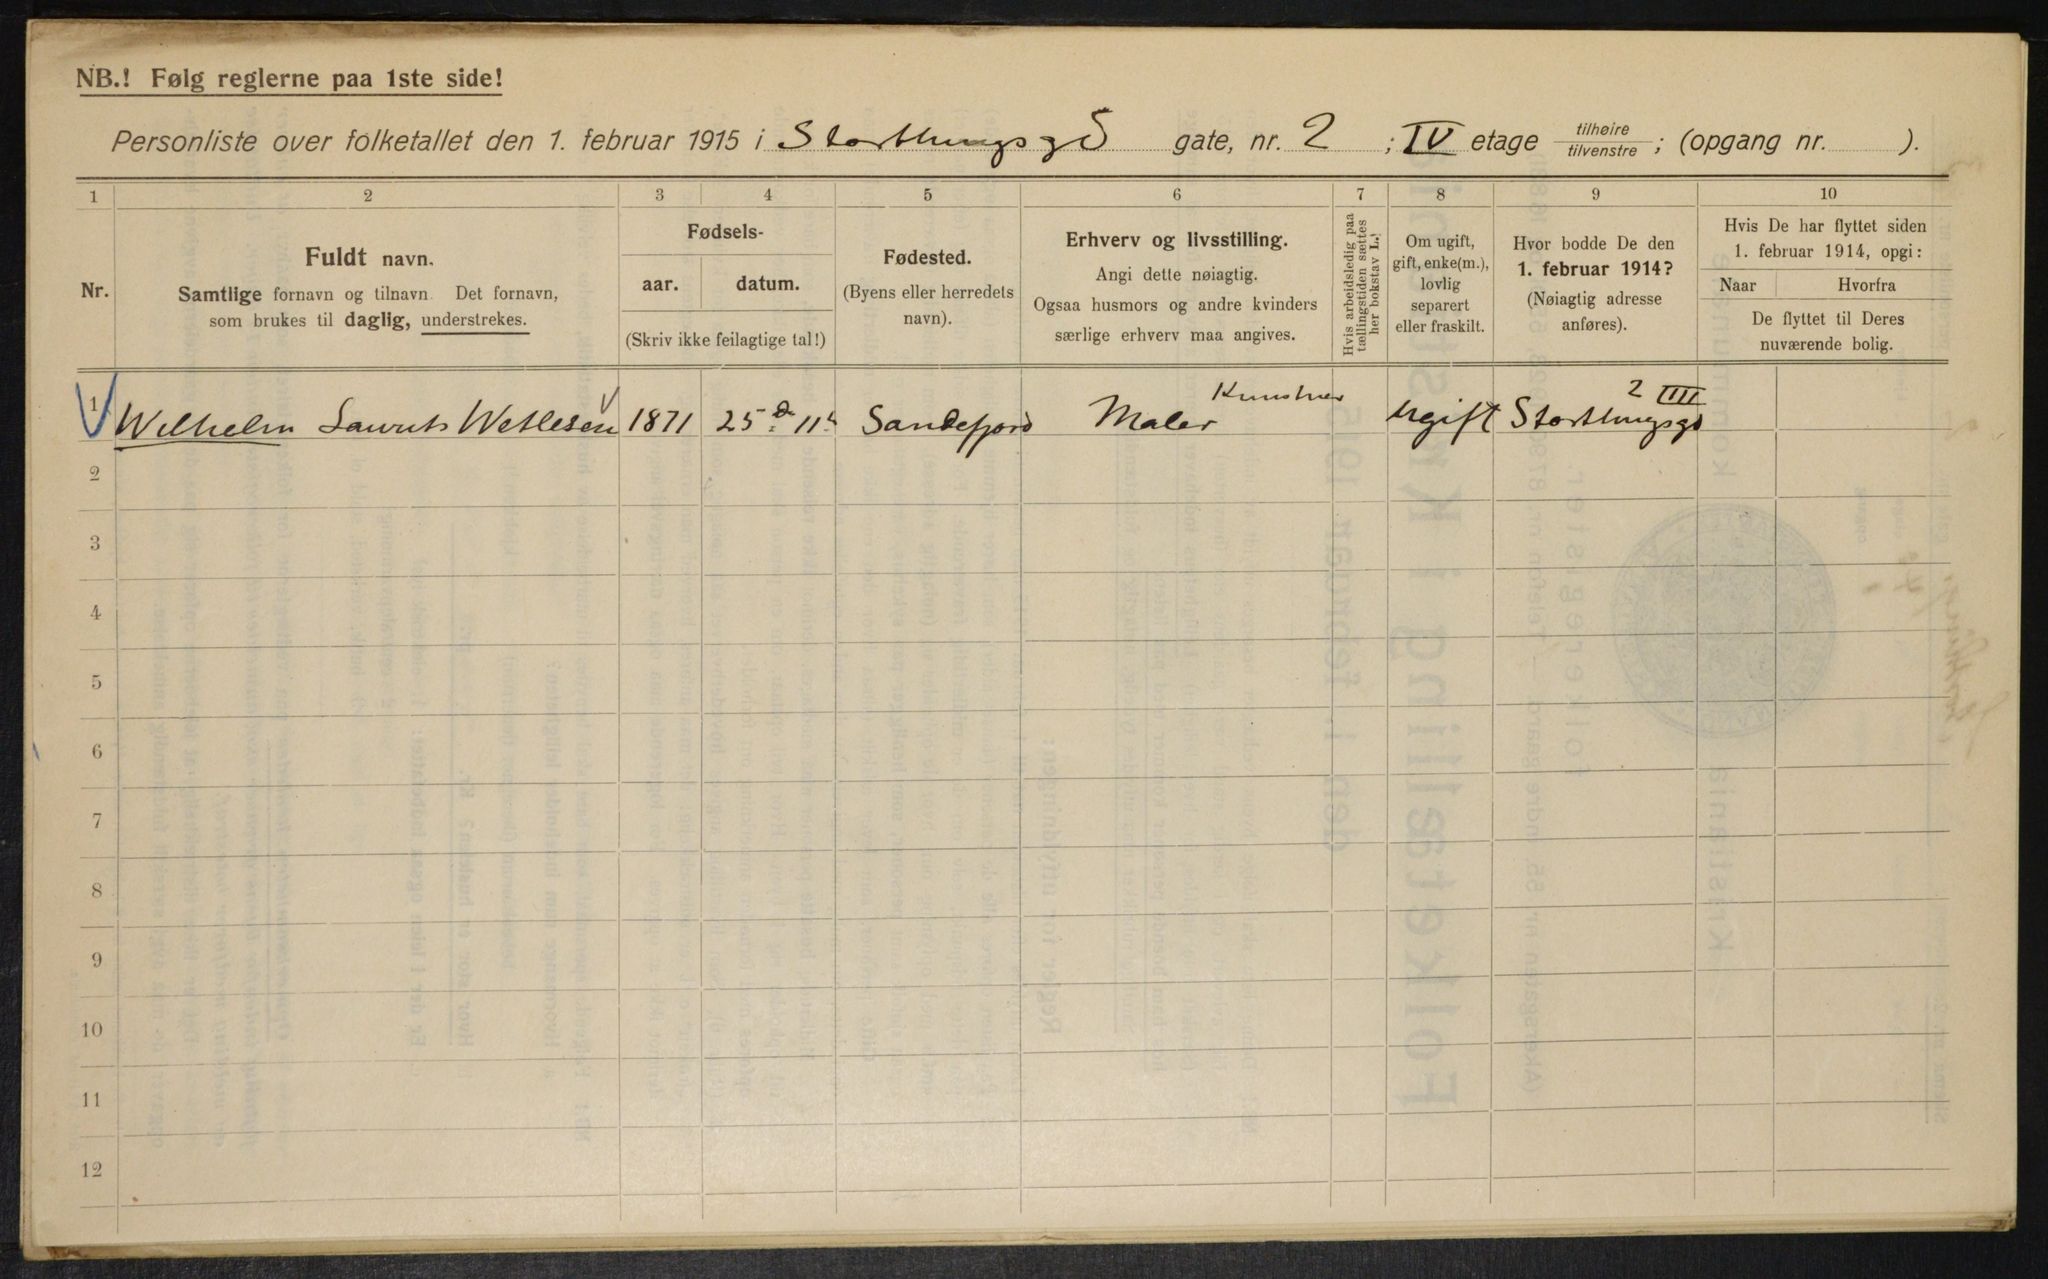 NB.! Følg reglerne paa 1ste side!
Personliste over folketallet den 1. februar 1915 i Storthingsgd gate, nr. 2 ; IV etage tilhøire tilvenstre ; (opgang nr. ).
1 2 3 4 5 6 7 8 9 10
Nr.
Fuldt navn.
Samtlige fornavn og tilnavn. Det fornavn,
som brukes til daglig, understrekes.
Fødsels-
aar. datum.
(Skriv ikke feilagtige tal!)
Fødested.
(Byens eller herredets
navn).
Erhverv og livsstilling.
Angi dette nøiagtig.
Ogsaa husmors og andre kvinders
særlige erhverv maa angives.
Hvis arbeidsledig paa
tællingstiden sættes
her bokstav L.!
Om ugift,
gift, enke(m.),
lovlig
separert
eller fraskilt.
Hvor bodde De den
1. februar 1914?
(Nøiagtig adresse
anføres).
Hvis De har flyttet siden
1. februar 1914, opgi:
Naar Hvorfra
De flyttet til Deres
nuværende bolig.
1 Wilhelm Lauritz Wetlesen 1871 25d 11 Sandefjord Maler Kunstner Ugift Storthingsgd 2 III
2
3
4
5
6
7
8
9
10
11
12